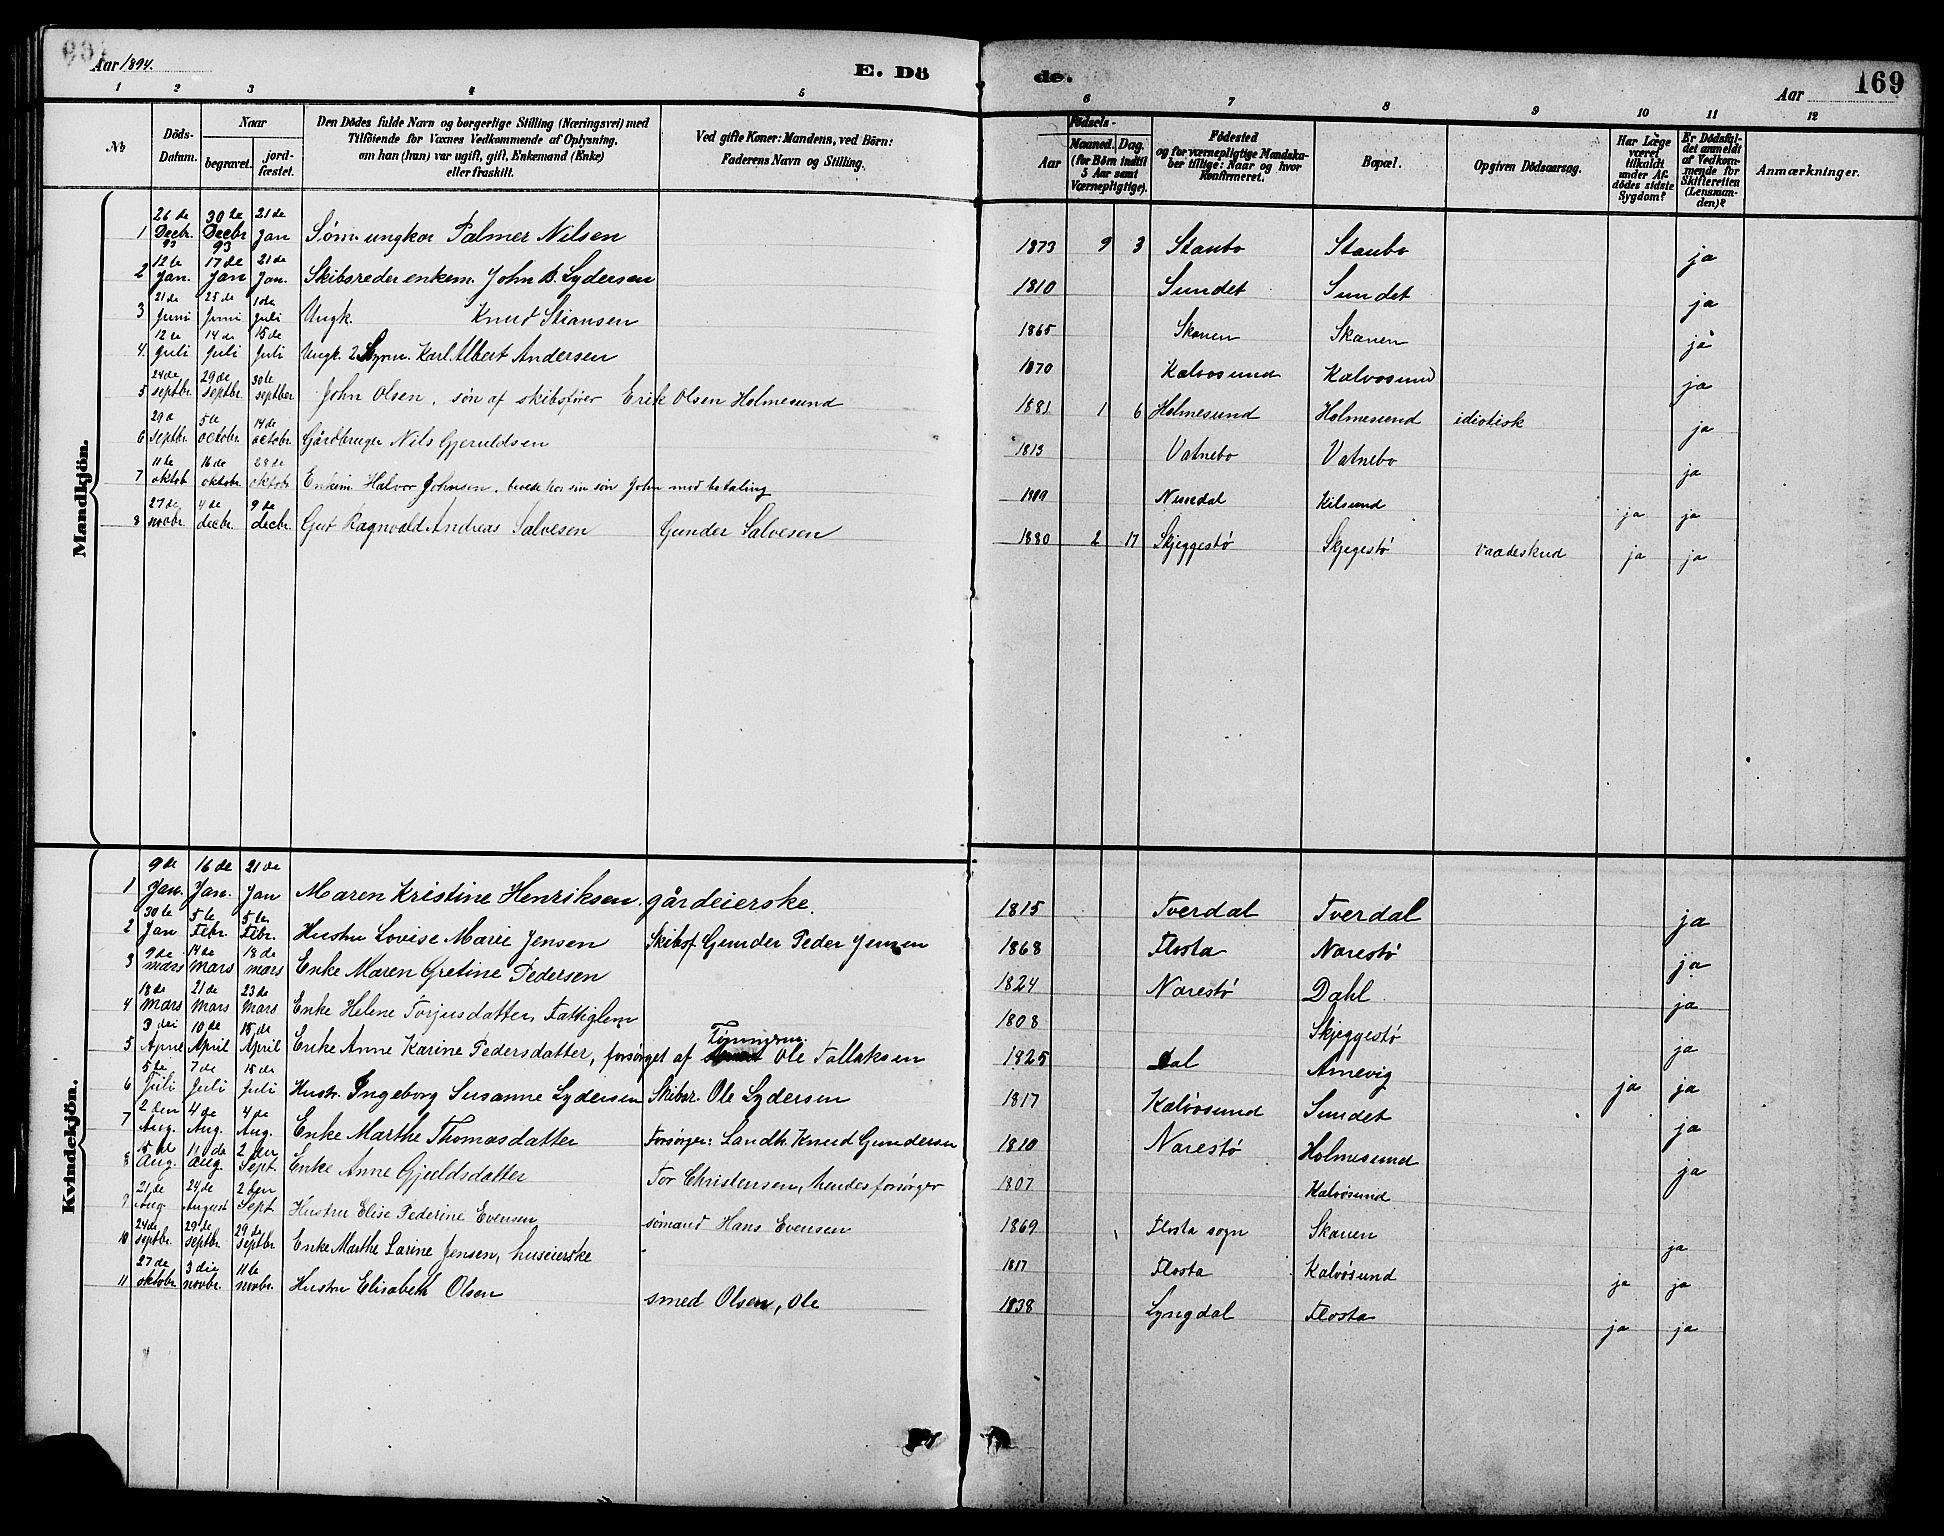 Aar 1894.
E. Dö
de.
Aar
169
1 2 3 4 5 6 7 8 9 10 11 12
No
Döds-
Datum.
Naar
begravet.
jord-
fæstet.
Den Dödes fulde Navn og borgerlige Stilling (Næringsvei) med
Tilföiende for Voxnes Vedkommende af Oplysning,
om han (hun) var ugift, gift, Enkemand (Enke)
eller fraskilt.
Ved gifte Koner: Mandens, ved Börn:
Faderens Navn og Stilling.
Födsels-
Aar
Maaned. Dag.
(for Börn indtil
5 Aar samt
Værnepligtige).
Födested
og for værnepligtige Mandska-
ber tillige: Naar og hvor
Konfirmeret.
Bopæl.
Opgiven Dödsaarsag.
Har Læge
været
tilkaldt
under Af-
dödes sidste
Sygdom?
Er Dödsfal-
det anmeldt
af Vedkom-
mende for
Skifteretten
(Lensman-
den)?
Anmærkninger.
Mandkjön.
1 26de Decbr. 93 30te Decbr 93 21de Jan Søm. ungkar Palmer Nilsen 1873 9 3 Staubo Staubo ja
2 12te Jan. 17de Jan 21de Jan. Skibsreder enkem. John B. Lydersen 1810 Sundet Sundet ja
3 21de Juni 25de Juni 1ste Juli Ungk. Knud Stiansen 1865 Skonen Skonen ja
4. 12te Juli 14de Juli 15de Juli Ungk. 2 Karl Albert Andersen 1870 Kalvøsund Kalvøsund ja
5 24de septbr. 29de septbr. 30te septber John Olsen, søn af skibsfører Erik Olsen Holmesund 1881 1 6 Holmesund Holmesund idiotisk ja
6 29de septbr. 5te octobr. 14de octobr. Gårdbruger Nils Gjeruldsen 1813 Vatnebo Vatnebo ja
7 11te oktob 16de oktobr. 28de oktobr Enkem. Halvor Johnsen, boede hos sin søn John mod betaling 1809 Kilsund ja ja
8 27de novbr. 4de decbr. 9de decbr. Gut Ragnvald Andreas Salvesen Gunder Salvesen 1880 2 17 Skjeggestø Skjegestø Vaadeskud ja ja
Kvindekjön.
1 9de Jan. 16de Jan. 21de Jan Maren Kristine Henriksen. gårdeierske. 1815 Tverdal Tverdal ja
2 30te Jan 5te Febr. 5te Febr. Hustru Lovise Marie Jensen Skibsf. Gunder Peder Jensen 1868 Flosta Narestø ja
3 9de mars 14de Mars 18de mars Enke Maren Gretine Pedersen 1824 Narestø Dahl ja
4 18de Mars 21de Mars 23de Mars Enke Helene Torjusdatter, Fattiglem 1808 Skjeggestø ja
5 3die April 10de April 15de April Enke Anne Karine Pedersdatter, forsørget af Tømmerm. Ole Tallaksen 1825 Dal Arnevig ja ja
6 5te Juli 7de Juli 15de Juli Hustr. Ingeborg Susanne Lydersen Skibsr. Ole Lydersen 1817 Kalvøsund Sundet ja
7 2den Aug. 4de Aug. 4de Aug. Enke Marthe Thomasdatter Forsørger: Landh. Knud Gundersen 1810 Narestø Holmesund ja
8 Aug. 11de Aug. 2den Sept. Enke Anne Gjuldsdatter Tor Christensen, hendes forsørger 1807 Kalvøsund
9 21de Aug. 24de August 2den Sept Hustru Elise Pederine Evensen sømand Hans Evensen 1869 Flosta sogn Skonen ja
10 24de septbr. 29de septbr 29de septbr Enke Marthe Larine Jensen, huseierske 1817 Flosta Kalvøsund ja ja
11 27de oktobr. 3die novbr. 11te novbr. Hustru Elisabeth Olsen smed Olsen, Ole 1838 Lyngdal Flosta ja ja